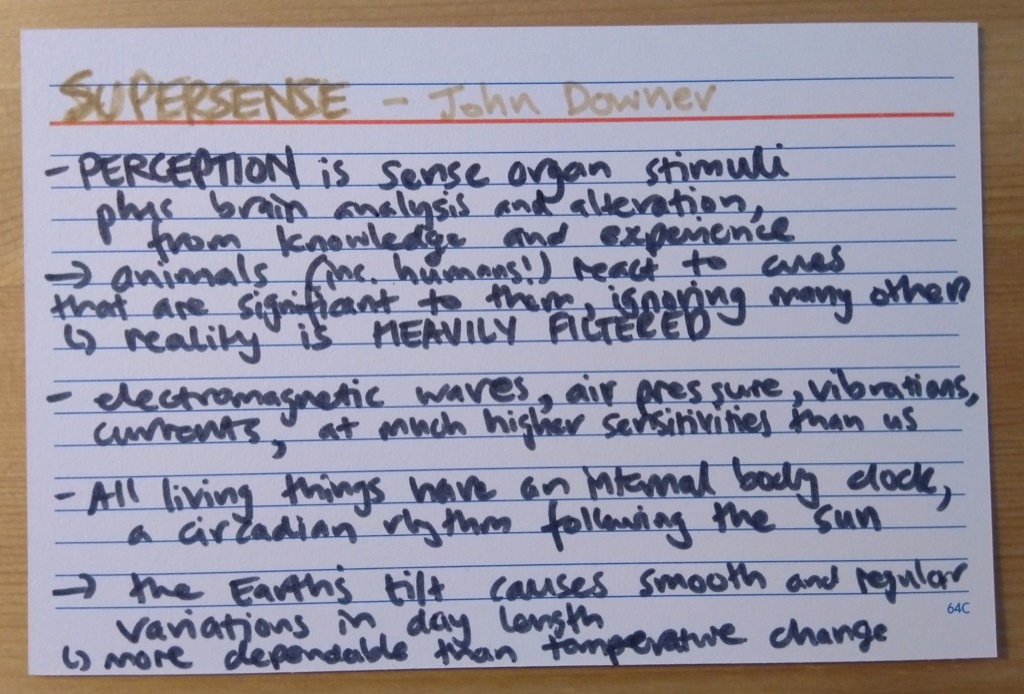 SUPERSENSE - John Downer
- PERCEPTION is sense organ stimuli
plus brain analysis and alteration,
from knowledge and experience
→ animals (inc. humans!) react to cues
that are significant to them, ignoring many other
↳ reality is HEAVILY FILTERED
- electromagnetic waves, air pressure, vibrations,
currents, at much higher sensitivities than us
- All living things have an internal body clock,
a circadian rhythm following the sun
→ the Earth's tilt causes smooth and regular
variations in day length
↳ more dependable than temperature change
64C